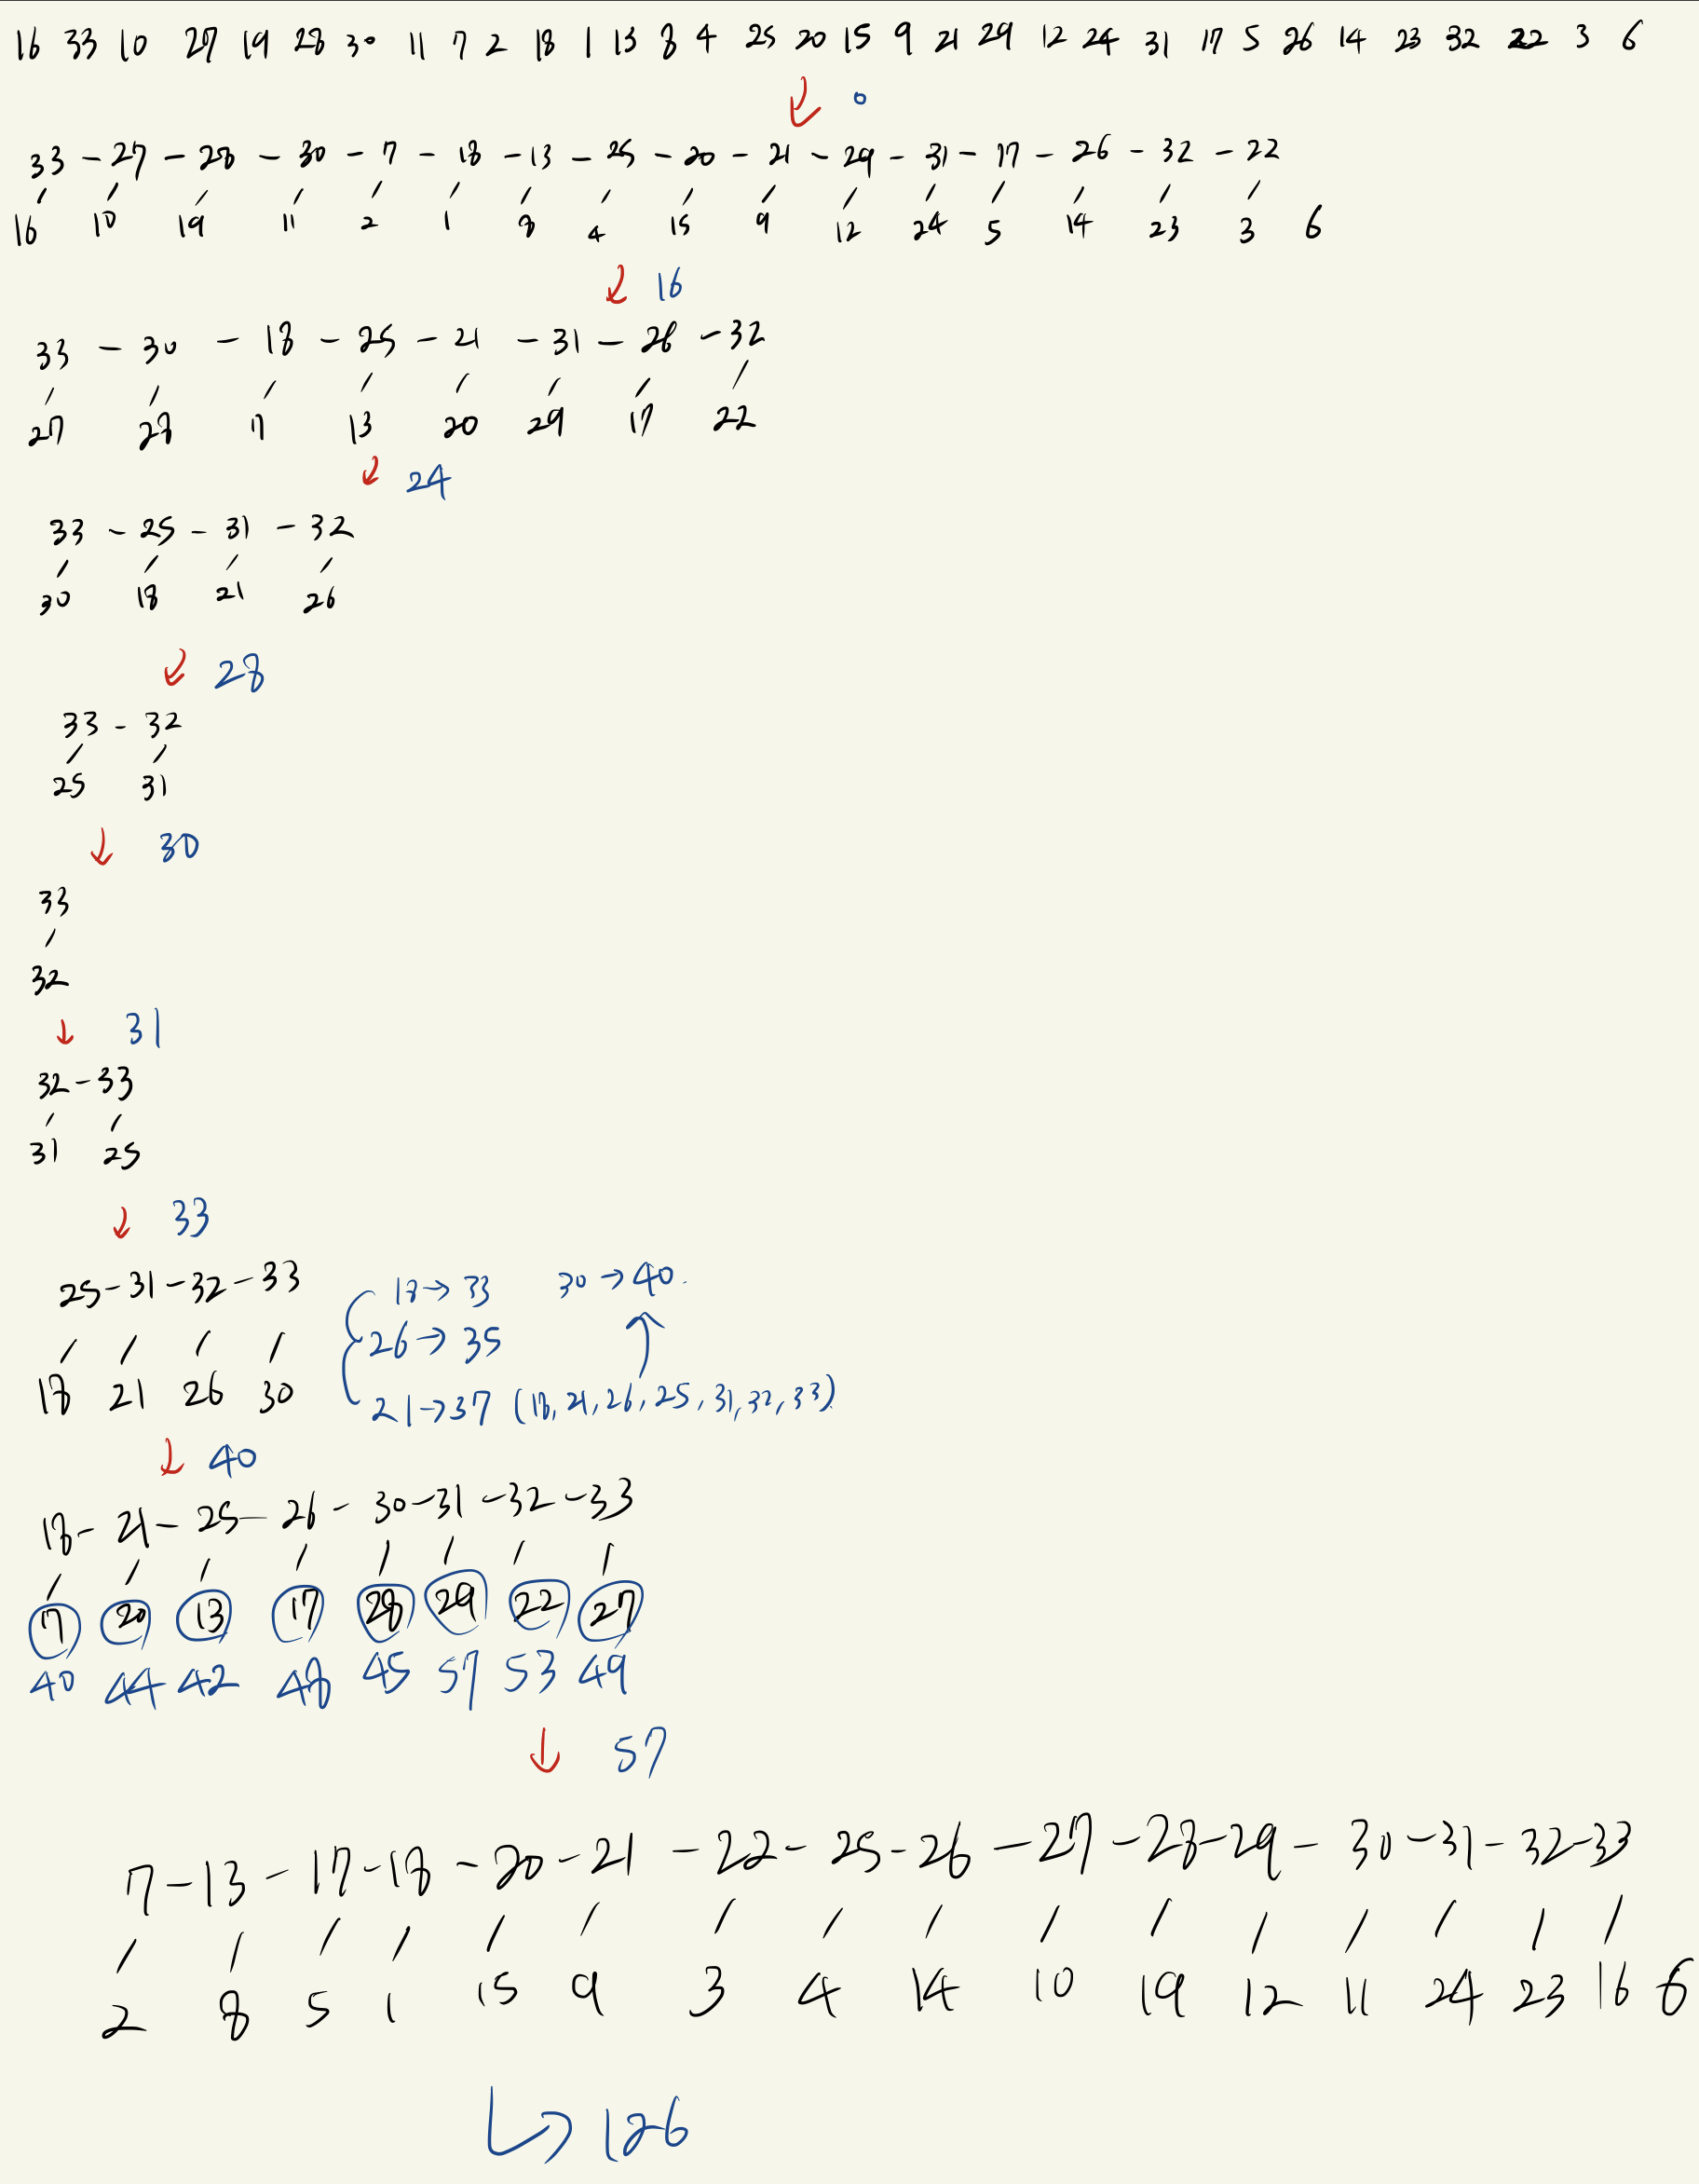 16 33 10 27 19 28 30 11 7 2 18 1 13 8 4 25 20 15 9 21 29 12 24 31 17 5 26 14 23 32 22 3 6
0
33 - 27 - 28 - 30 - 7 - 18 - 13 - 25 - 20 - 21 - 29 - 31 - 17 - 26 - 32 - 22
16 10 19 11 2 1 8 4 15 9 12 24 5 14 23 3 6
16
33 - 30 - 18 - 25 - 21 - 31 - 26 - 32
27 28 7 13 20 29 17 22
24
33 - 25 - 31 - 32
30 18 21 26
28
33 - 32
25 31
30
33
32
31
32 - 33
31 25
33
25 - 31 - 32 - 33
18 21 26 30
18 → 33 30 → 40.
26 → 35
21 → 37 (18, 21, 26, 25, 31, 32, 33)
40
18 - 21 - 25 - 26 - 30 - 31 - 32 - 33
7 20 13 17 28 29 22 27
40 44 42 48 45 57 53 49
57
7 - 13 - 17 - 18 - 20 - 21 - 22 - 25 - 26 - 27 - 28 - 29 - 30 - 31 - 32 - 33
2 8 5 1 15 9 3 4 14 10 19 12 11 24 23 16 6
126